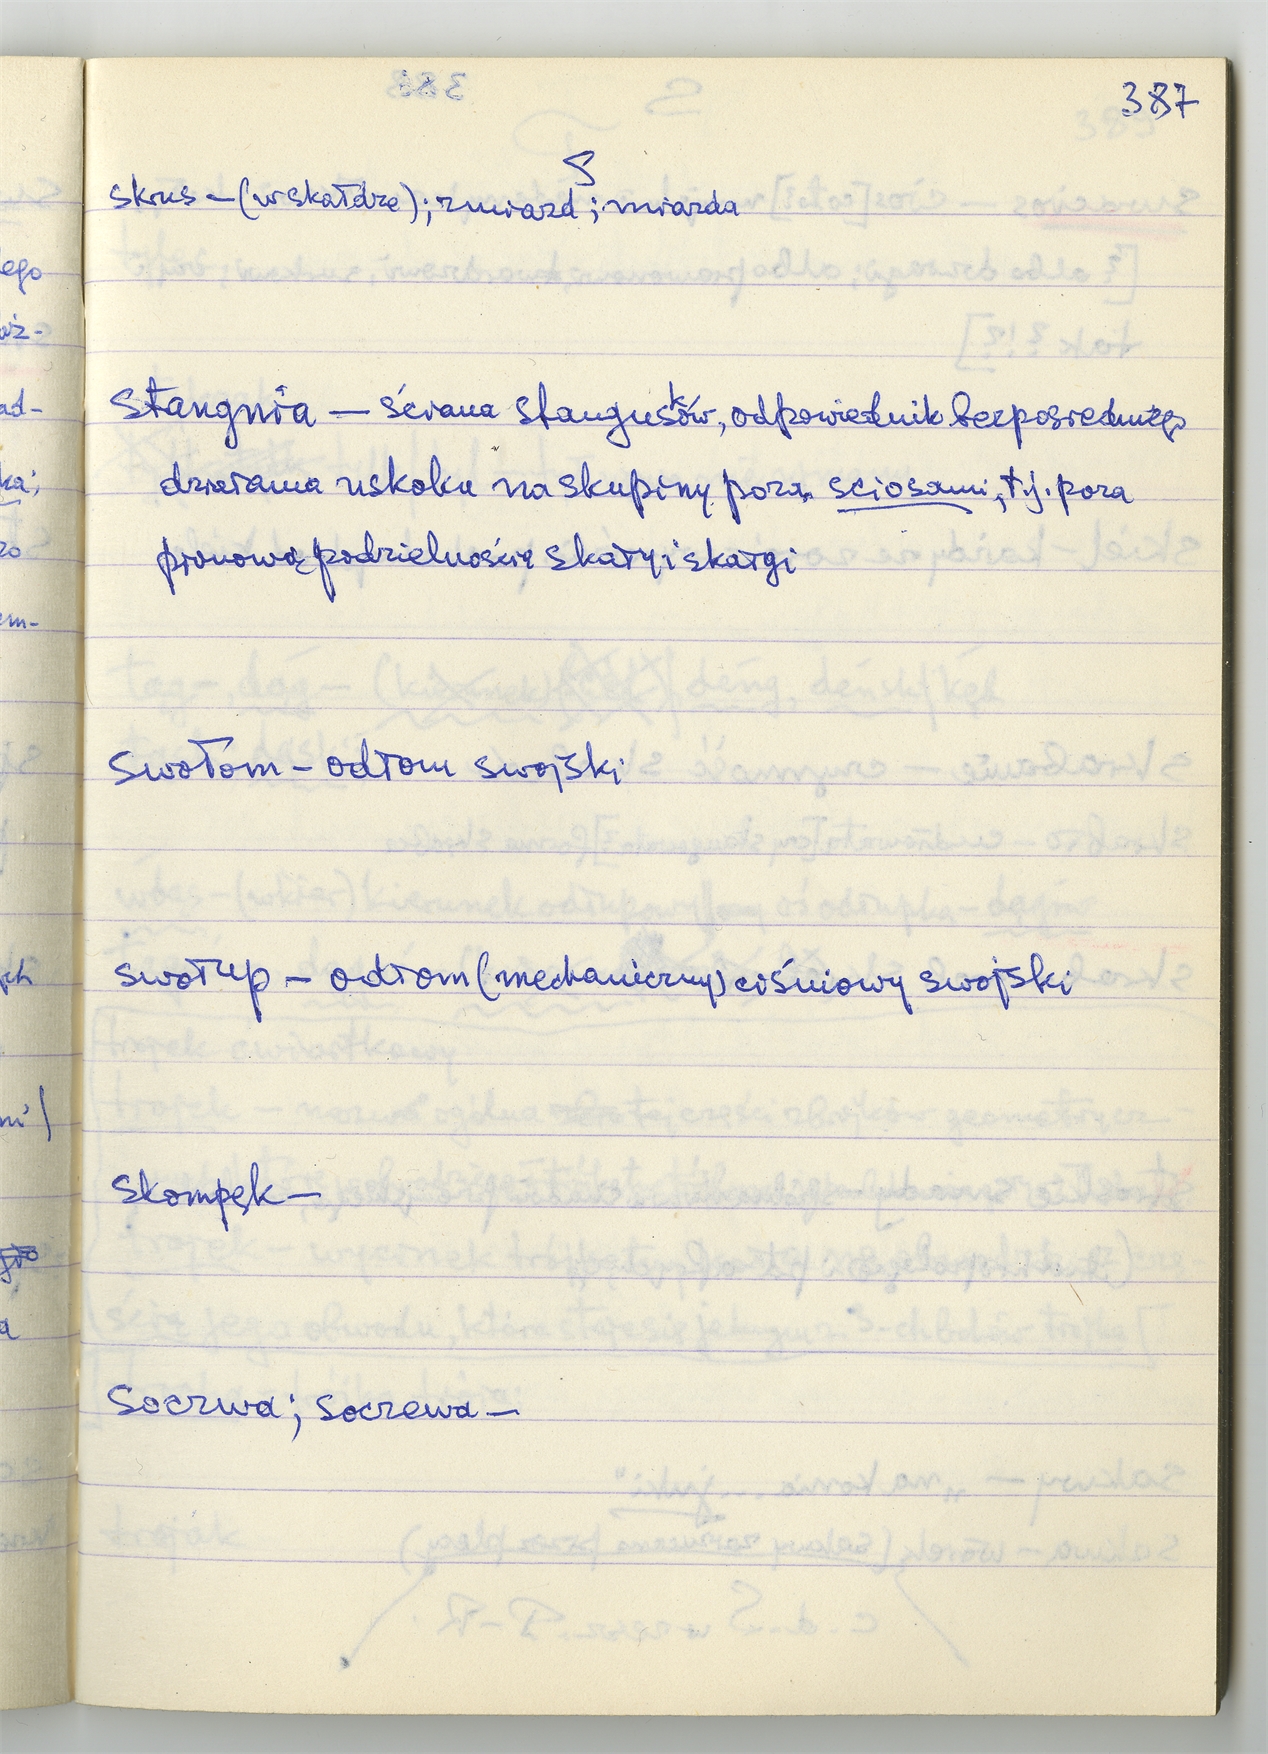 387
S
skrus – (w skałdze); zmiazd; miazda
Stangnia – ściana stangusków, odpowiednik bezpośredniego
działania uskoku na skupiny poza sciosami, t.j. poza
pionową podzielnością skały i skałgi
swołom – odłom swojski
swołup – odłom (mechaniczny) ciśniowy swojski
skompęk –
Soczwa; soczewa –